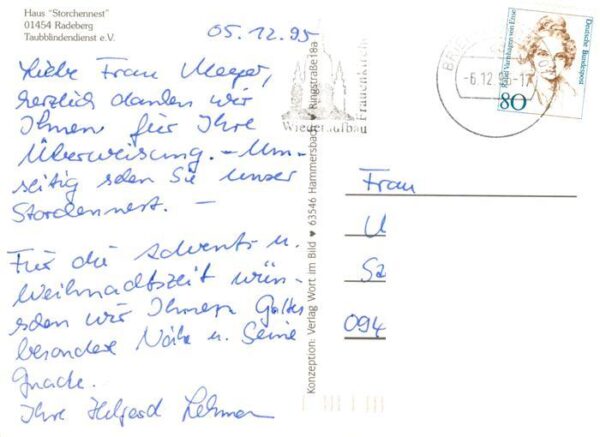 Haus "Storchennest"
01454 Radeberg
Taubblindendienst e.V.
05.12.95
Liebe Frau Meyer,
herzlich danken wir
Ihnen für Ihre
Überweisung. – Um-
seitig sehen Sie unser
Storchennest. –
Für die Advents u.
Weihnachtszeit wün-
schen wir Ihnen Gottes
besondere Nähe u. Seine
Gnade.
Ihre Helgard Lehmann
Konzeption: Verlag Wort im Bild ♥ 63546 Hammersbach ♥ Ringstraße 18a
Wiederaufbau
Frauenkirche
-6.12.95-17
80
Rahel Varnhagen von Ense
Deutsche Bundespost
Frau
U
Sa
094